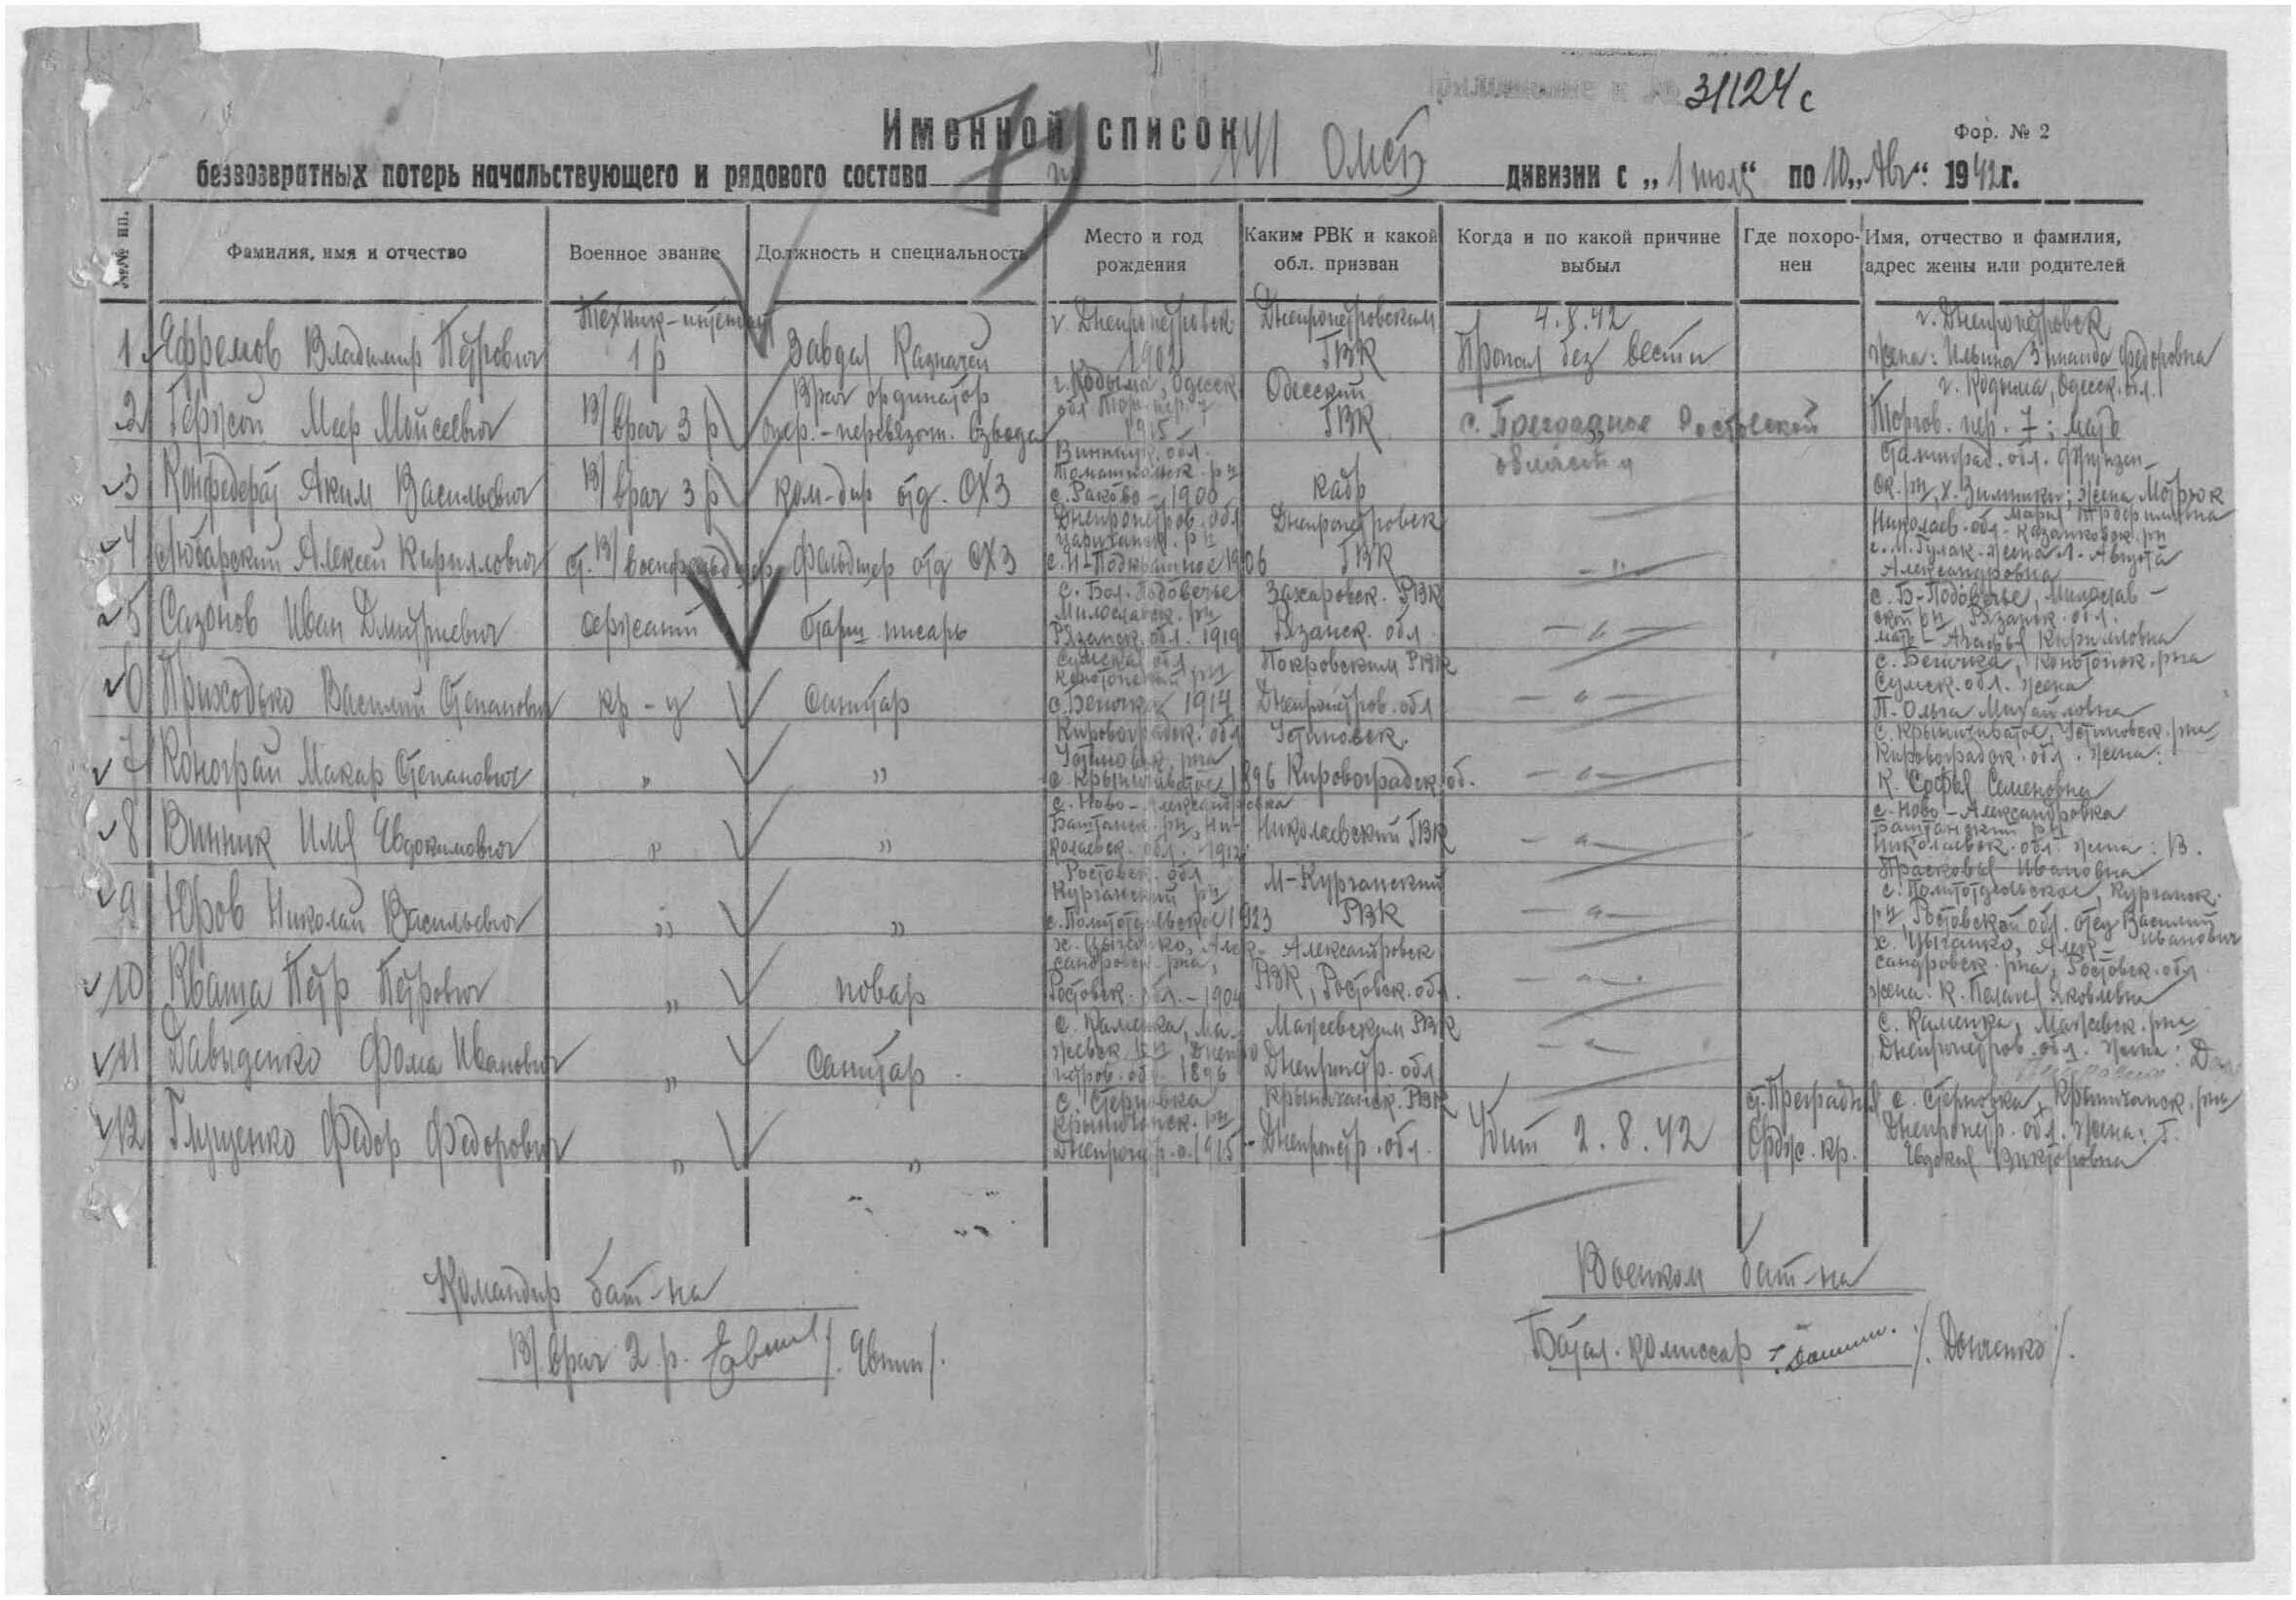 31124с
Именной список
Фор. № 2
безвозвратных потерь начальствующего и рядового состава 141 ОМСБ дивизии с „1 июля“ по 10 „Авг“. 1942г.
№№ пп.
Фамилия, имя и отчество
Военное звание
Должность и специальность
Место и год рождения
Каким РВК и какой обл. призван
Когда и по какой причине выбыл
Где похоро-нен
Имя, отчество и фамилия, адрес жены или родителей
1 Ефремов Владимир Петрович
Техник-интендант
1 р
Завдел Казначей
г. Днепропетровск
1902
Днепропетровским
ГВК
4.8.42
Пропал без вести
г. Днепропетровск
жена: Ильина Зинаида Федоровна
2 Гержой Меер Мойсеевич
В/врач 3 р
Врач ординатор
опер.-перевязоч. взвода
г. Кодыма, Одесск
обл. Торг. пер. 7
1915
Одесский
ГВК
с. Преградное Ростовской
области
г. Кодыма, Одесск. обл.
Торгов. пер. 7; мать
3 Конфедерат Аким Васильевич
В/врач 3 р
ком-дир отд. ОХЗ
Винниц. обл.
Томашпольск. р-н
с. Раково - 1900
кадр
Сталинград. обл. Фрунзен-
ск. р-н, х. Зимники; жена Мотрюк
Мария Трофимовна
4 Любарский Алексей Кириллович
ст. в/военфельдшер
Фельдшер отд ОХЗ
Днепропетров. обл
Царичанск. р-н
с. Н-Подкряжное 1906
Днепропетровск
ГВК
- " -
Николаев. обл - Казанковск. р-н
с. М. Гулак - жена Л. Августа
Александровна
5 Сазонов Иван Дмитриевич
сержант
Старш. писарь
с. Бол. Подовечье
Милославск. р-н
Рязанск. обл. 1919
Захаровск. РВК
Рязанск. обл
- " -
с. Б-Подовечье, Милослав-
ской р-н, Рязанск. обл.
мать - Агафья Кирилловна
6 Приходько Василий Степанович
кр-ц
Санитар
Сумская обл
Конотопский р-н
с. Беличка 1914
Покровским РВК
Днепропетров. обл
- " -
с. Беличка, Конотопск. р-на
Сумск. обл. жена
П. Ольга Михайловна
7 Конограй Макар Степанович
"
"
Кировоградск. обл
Устиновск. р-на
с. Крыничеватое 1896
Устиновск.
Кировоградск. об.
- " -
с. Крыничеватое, Устиновск. р-на
Кировоградск. обл. жена:
К. Софья Семеновна
8 Винник Илья Евдокимович
"
"
с. Ново-Александровка
Баштанск. р-н, Ни-
колаевск. обл. - 1912
Николаевский ГВК
- " -
с. Ново-Александровка
Баштанский р-н
Николаевск. обл. жена: В.
Прасковья Ивановна
9 Юров Николай Васильевич
"
"
Ростовск. обл
Курганский р-н
с. Политотдельское 1923
М-Курганский
РВК
- " -
с. Политотдельское, Курганск.
р-н, Ростовской обл. отец Василий
Иванович
10 Кваша Петр Петрович
"
повар
х. Цыганко, Алек-
сандровск. р-на,
Ростовск. обл. - 1904
Александровск
РВК, Ростовск. обл.
- " -
х. Цыганко, Алек-
сандровск. р-на, Ростовск. обл.
жена: К. Пелагея Яковлевна
11 Давыденко Фома Иванович
"
Санитар
с. Каменка, Ма-
жевск. р-н Днепро
петров. об. 1896
Мажевским РВК
Днепропетр. обл
- " -
с. Каменка, Мажевск. р-на
Днепропетров. обл. жена: Д
12 Глущенко Федор Федорович
"
"
с. Стерновка
Крыничанск. р-н
Днепропетр. о. 1915
Крыничанск. РВК
Днепропетр. обл.
Убит 2.8.42
ст. Преградная
Ордж. кр.
с. Стерновка, Крыничанск. р-на
Днепропетр. обл. жена: Г.
Евдокия Викторовна
Командир бат-на
В/врач 2 р. /. Евтин /.
Военком бат-на
Батал. комиссар /. Донченко /.